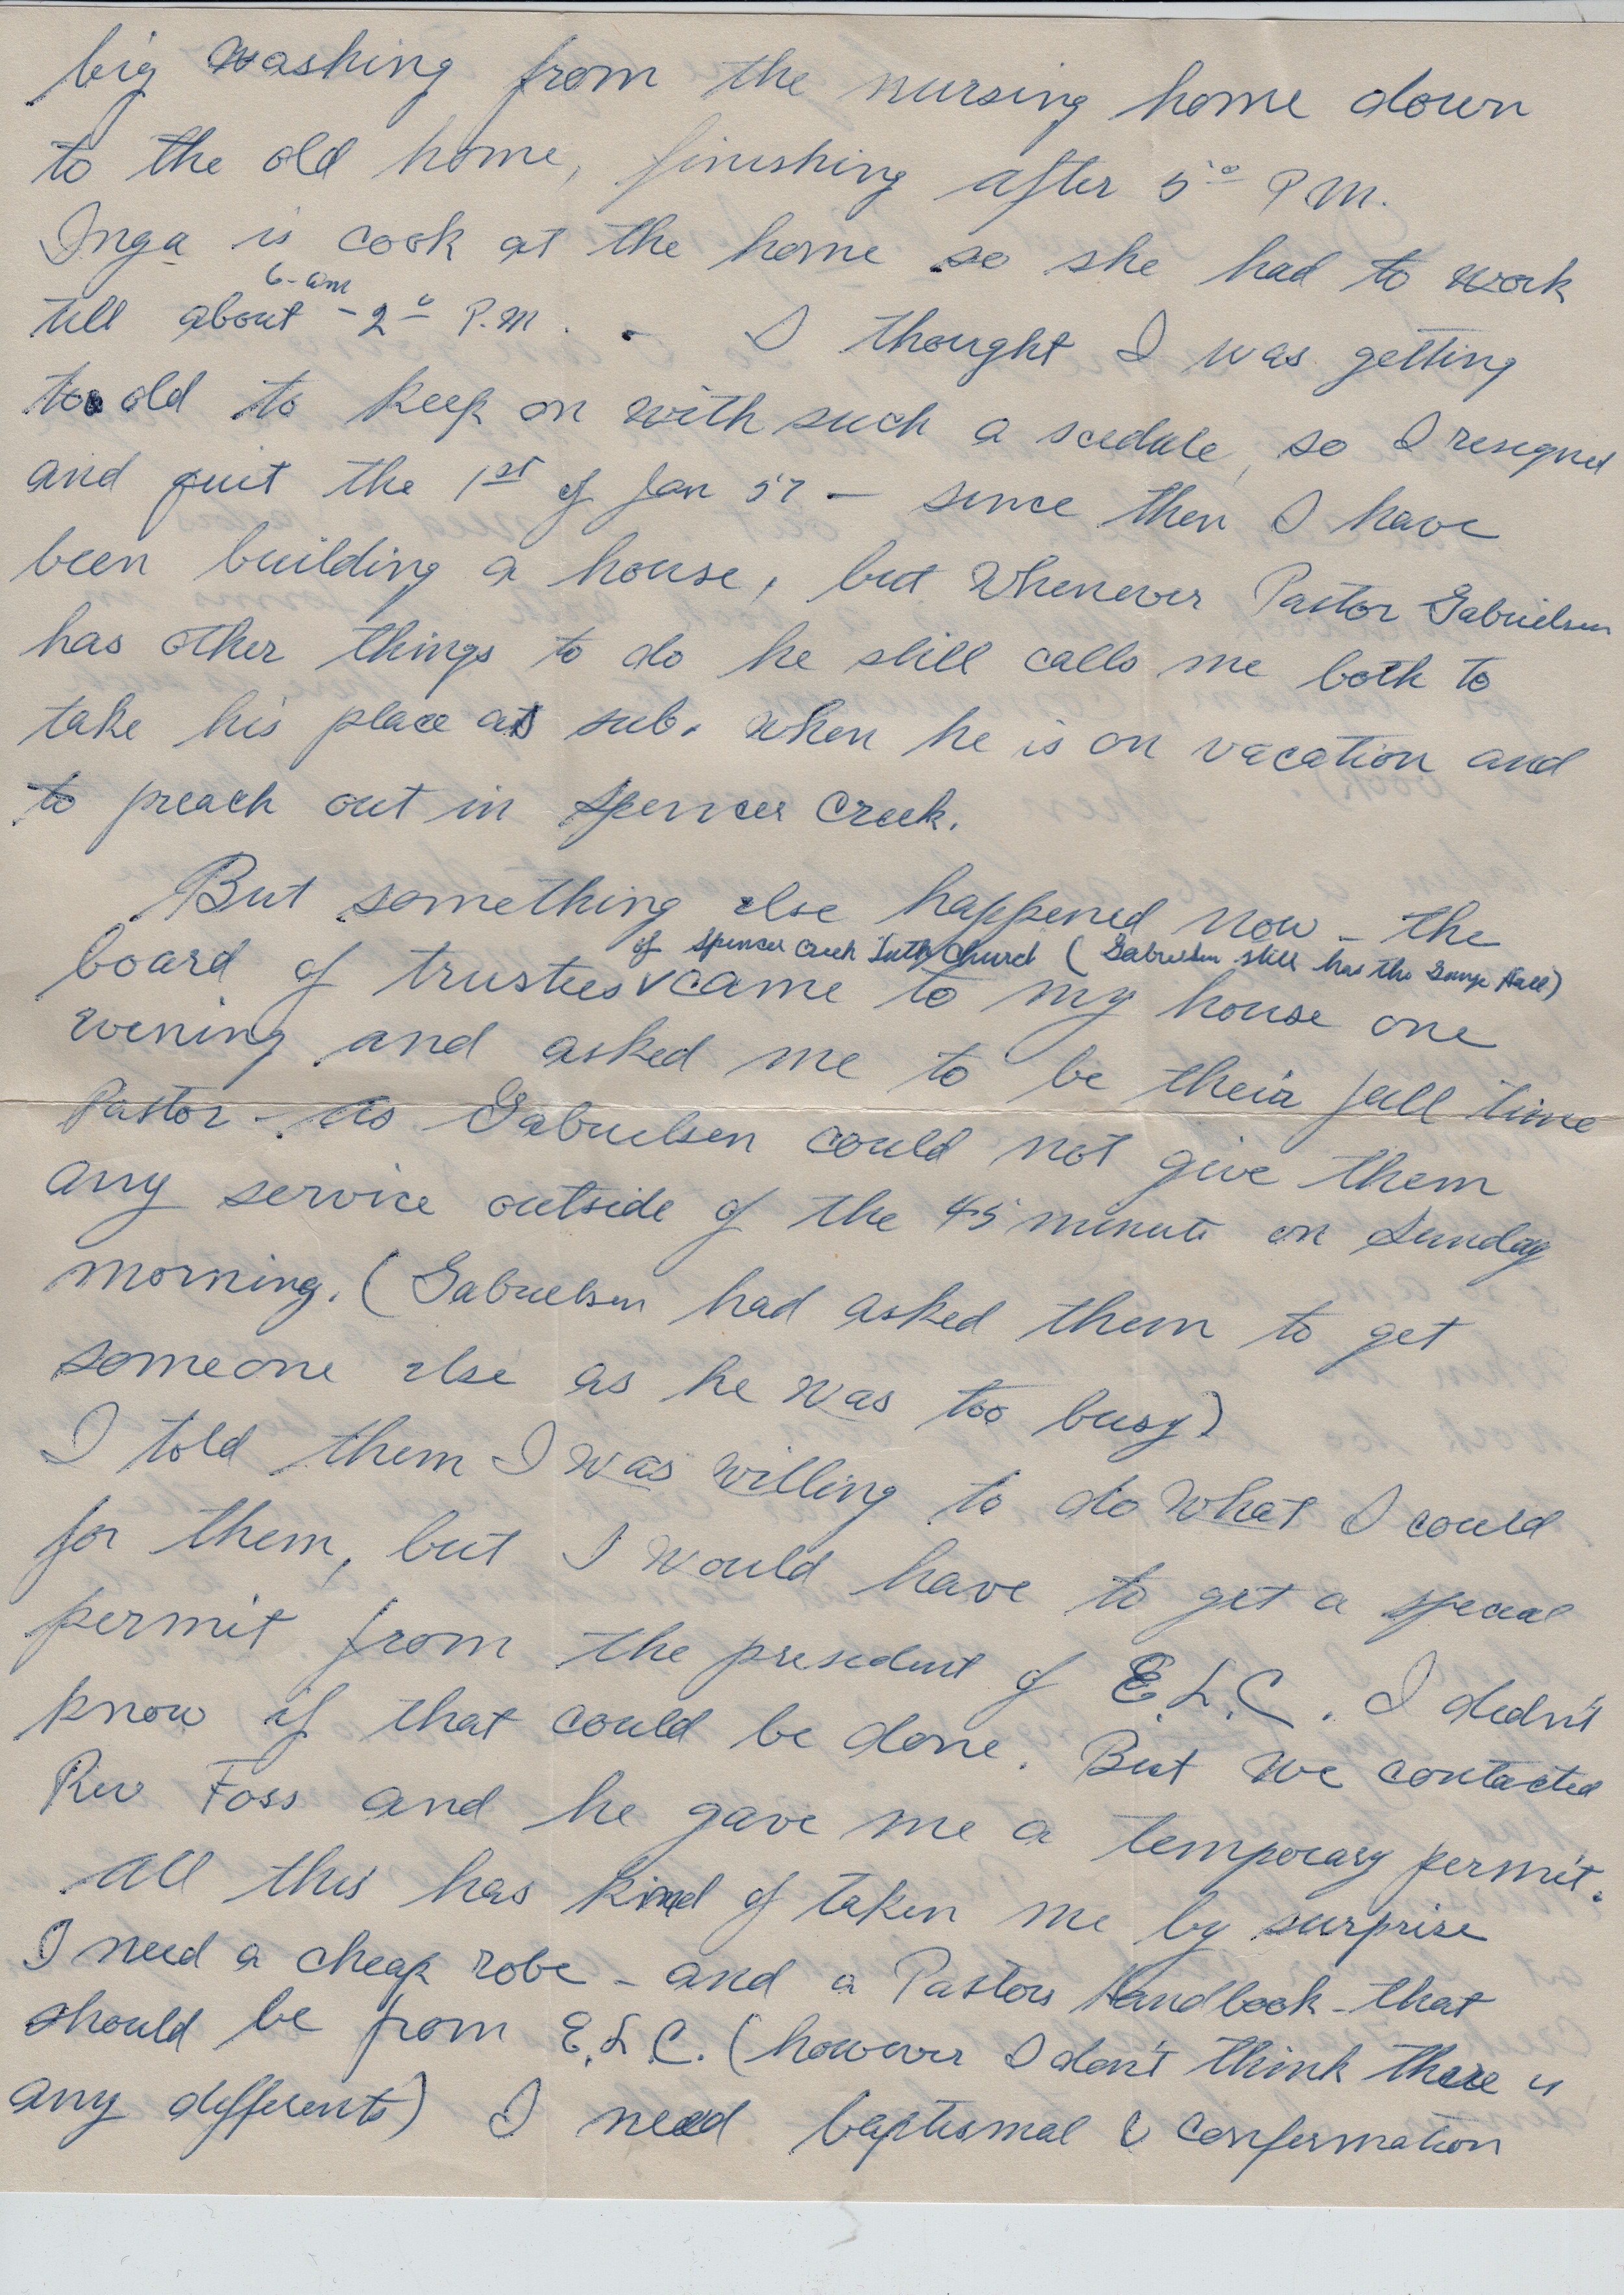 big washing from the nursing home down
to the old home, finishing after 5:00 P.M.
Inga is cook at the home so she had to work
6-am
till about - 2:0 P.M. - I thought I was getting
too old to keep on with such a scedule, so I resigned
and quit the 1st of Jan 57 - since then I have
been building a house, but whenever Pastor Gabrielsen
has other things to do he still calls me both to
take his place as sub. when he is on vacation and
to preach out in Spencer Creek.
But something else happened now - the
of Spencer Creek Luth Church (Gabrielsen still has the Hall)
board of trustees v came to my house one
evening and asked me to be their full time
Pastor - as Gabrielsen could not give them
any service outside of the 45 minute on Sunday
morning. (Gabrielsen had asked them to get
someone else as he was too busy)
I told them I was willing to do what I could
for them, but I would have to get a special
permit from the president of E.L.C. I didn't
know if that could be done. But we contacted
Rev Foss and he gave me a temporary permit.
All this has kind of taken me by surprise
I need a cheap robe - and a Pastors Handbook - that
should be from E.L.C. (however I don't think there is
any differents) I need baptismal & confermation